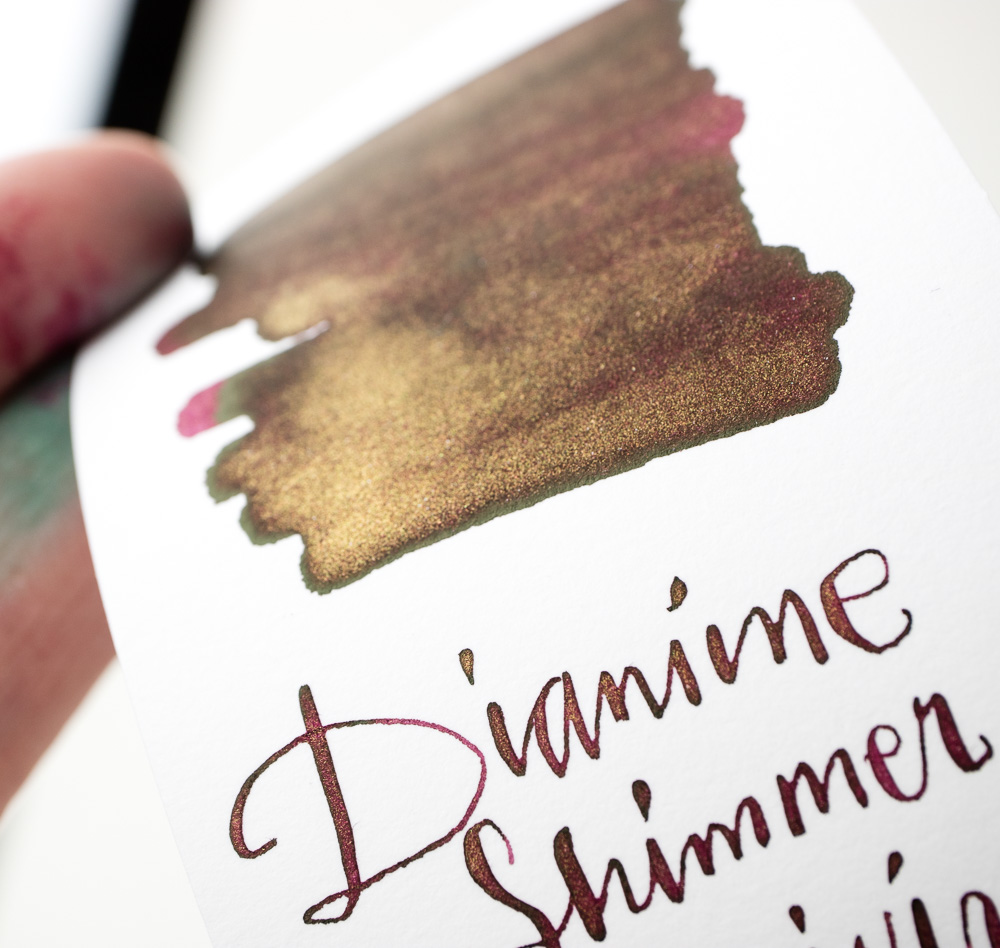 Diamine
Shimmer